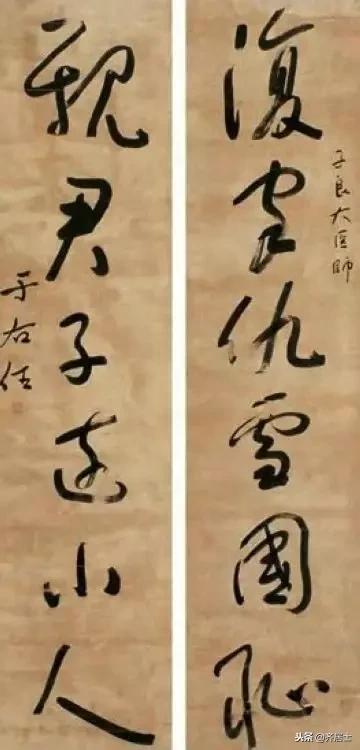 復家仇雪國恥
子良大医師
親君子遠小人
于右任
头条 @齐居士